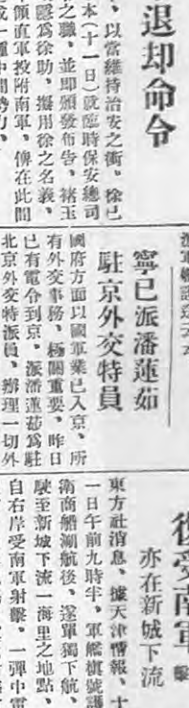 退却命令
、以當維持治安之衝。徐已
本(十一日)就臨時保安總司
之職、並即頒發布告、褚玉
爲徐助、擬用徐之名義、
傾直軍投附南軍、俾在此間
寧已派潘蓮茹
駐京外交特員
國府方面以國軍業已入京、所
有外交事務、極關重要、昨日
已有電令到京、派潘蓮茹爲駐
北京外交特派員、辦理一切外
後受南軍
亦在新城下流
東方社消息、據天津情報、十
一日午前九時半、軍艦旗號護
衛商船溯航後、遂單獨下航、
駛至新城下流一海里之地點、
自右岸受南軍射擊、一彈中